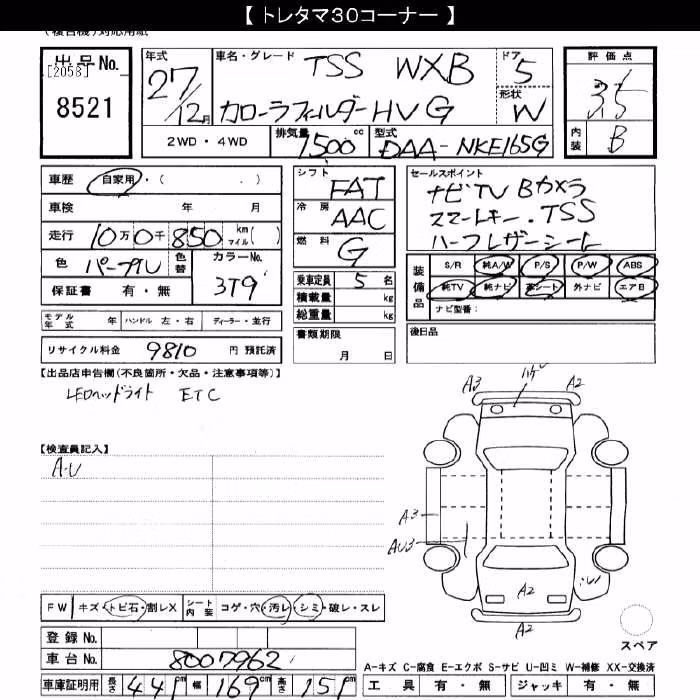 【 トレタマ30コーナー 】
(複合機)対応用紙
出品 No.
[2058]
8521
年式 車名・グレード ドア 評価点
27/12月
TSS WXB 5
形状
カローラフィルダーHV G W
3.5
内装 B
2WD・4WD 排気量 1500 cc 型式 DAA-NKE165G
車歴 自家用・( . )
車検 年 月
走行 10万0千850 km マイル( )
色 パープル 色替 カラーNo. 3T9
保証書 有・無
モデル年式 年 ハンドル 左・右 ディーラー・並行
リサイクル料金 9810 円 預託済
シフト FAT
冷房 AAC
燃料 G
乗車定員 5 名
積載量 kg
総重量 kg
書類期限
月 日
セールスポイント
ナビTV Bカメラ
スマートキー・TSS
ハーフレザーシート
装備品
S/R 純A/W P/S P/W ABS
純TV 純ナビ 革シート 外ナビ エアB
ナビ型番:
後日品
【出品店申告欄(不良箇所・欠品・注意事項等)】
LEDヘッドライト ETC
【検査員記入】
A・U
A3 A2
A3
AU3
A2
A2
FW キズ・トビ石・割レX シート内装 コゲ・穴・汚レ・シミ・破レ・スレ
登録 No.
車台 No. 8007962
車庫証明用 長さ 441 cm 幅 169 cm 高さ 151 cm
スペア
A-キズ C-腐食 E-エクボ S-サビ U-凹ミ W-補修 XX-交換済
工具 有・無 ジャッキ 有・無